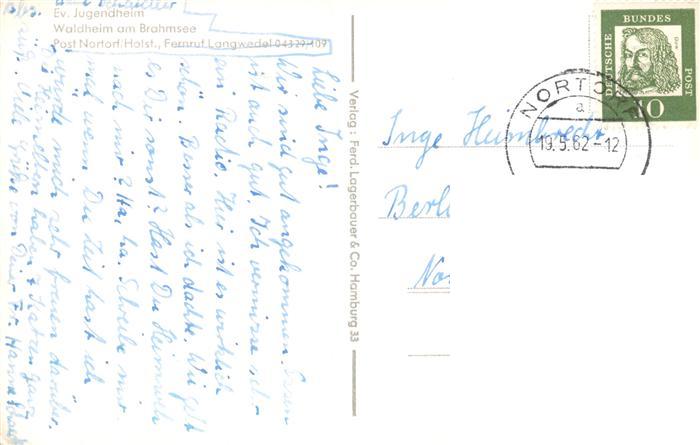 Ev. Jugendheim
Waldheim am Brahmsee
Post Nortorf/Holst., Fernruf Langwedel 04329-109
Liebe Inge!
Wir sind gut angekommen. Essen
ist auch gut. Ich vermisse
ein Radio. Hier ist es wirklich
schön. Besser als ich dachte. Wie geht
es Dir sonst? Hast Du Heimweh
nach mir? Ha, ha. Schreibe mir
mal wenn Du Zeit hast ich
würde mich sehr freuen darüber.
haben Katzen ganz
Viele Grüße von Deiner Fr. Hanna
Verlag: Ferd. Lagerbauer & Co. Hamburg 33
DEUTSCHE BUNDESPOST
Dürer
10
NORTORF
a
19.5.62-12
Inge Humbrecht
Berl
No